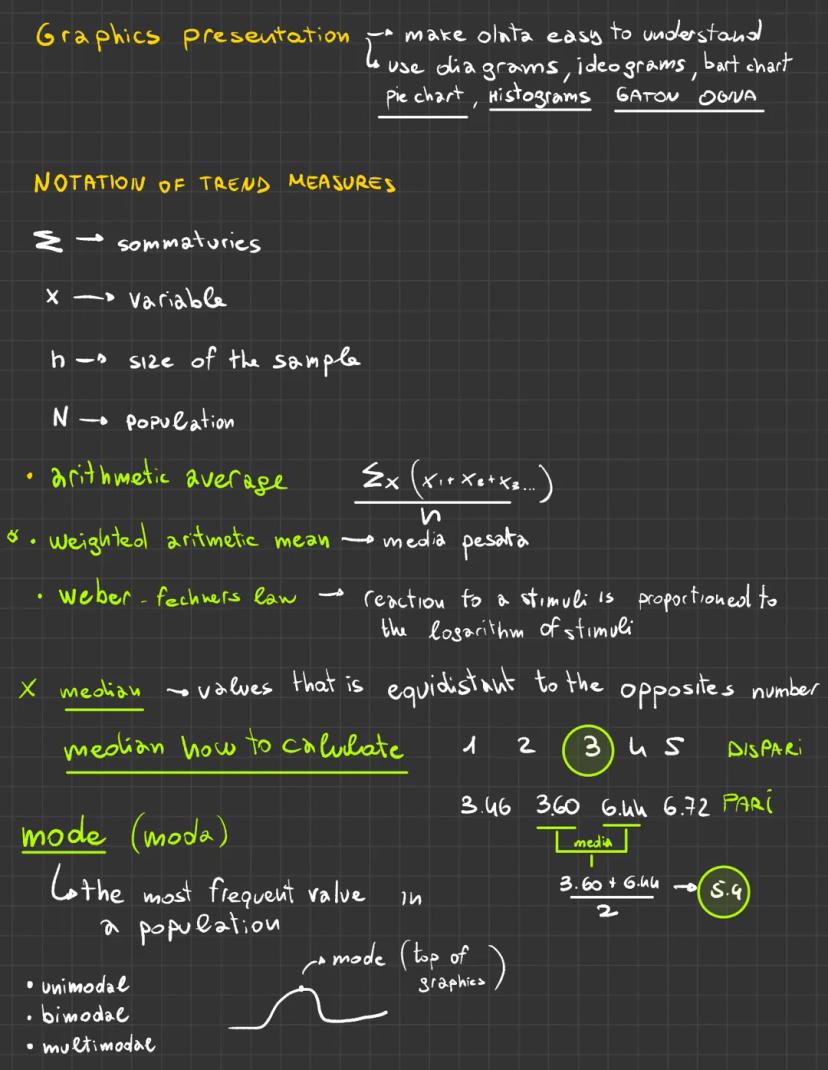 Graphics presentation → make olata easy to understand
↳ use diagrams, ideograms, bart chart
Pie chart, Histograms
NOTATION OF TREND MEASURES
Σ → sommatories
x → variable
n → size of the sample
N → population
• arithmetic average Σx (x₁+x₂+x₃...)
n
• weighted aritmetic mean → media pesata
• weber-fechners law → reaction to a stimuli is proportioned to
the logarithm of stimuli
X median → values that is equidistant to the opposites number
median how to calculate 1 2 3 4 5 DISPARI
3.46 3.60 6.44 6.72 PARI
media
3.60 + 6.44 → 5.4
2
mode (moda)
↳ the most frequent value in
a population
→ mode (top of
graphics)
• unimodal
• bimodal
• multimodal